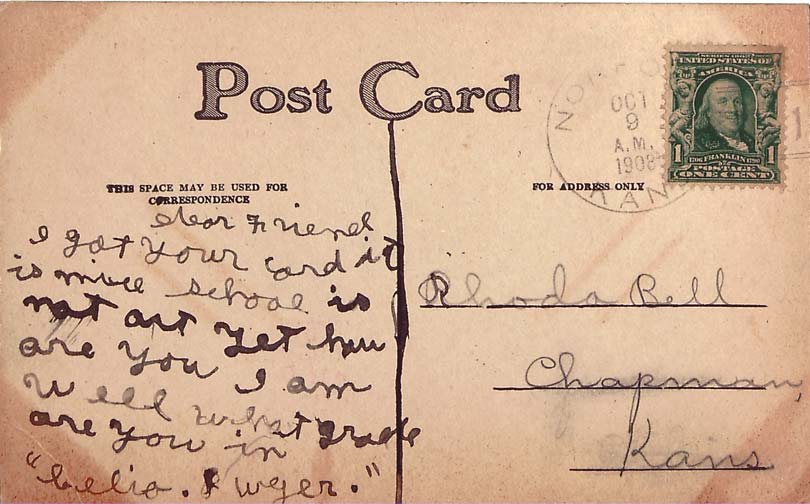 Post Card
THIS SPACE MAY BE USED FOR
CORRESPONDENCE
FOR ADDRESS ONLY
OCT
9
A.M.
1908
KAN
SERIES 1902
UNITED STATES OF
AMERICA
1 1
1706 FRANKLIN 1790
POSTAGE
ONE CENT
dear Friend
I got your card it
is nice school is
not aut yet how
are you I am
well what
are you in grade
Rhoda Bell
Chapman,
Kans